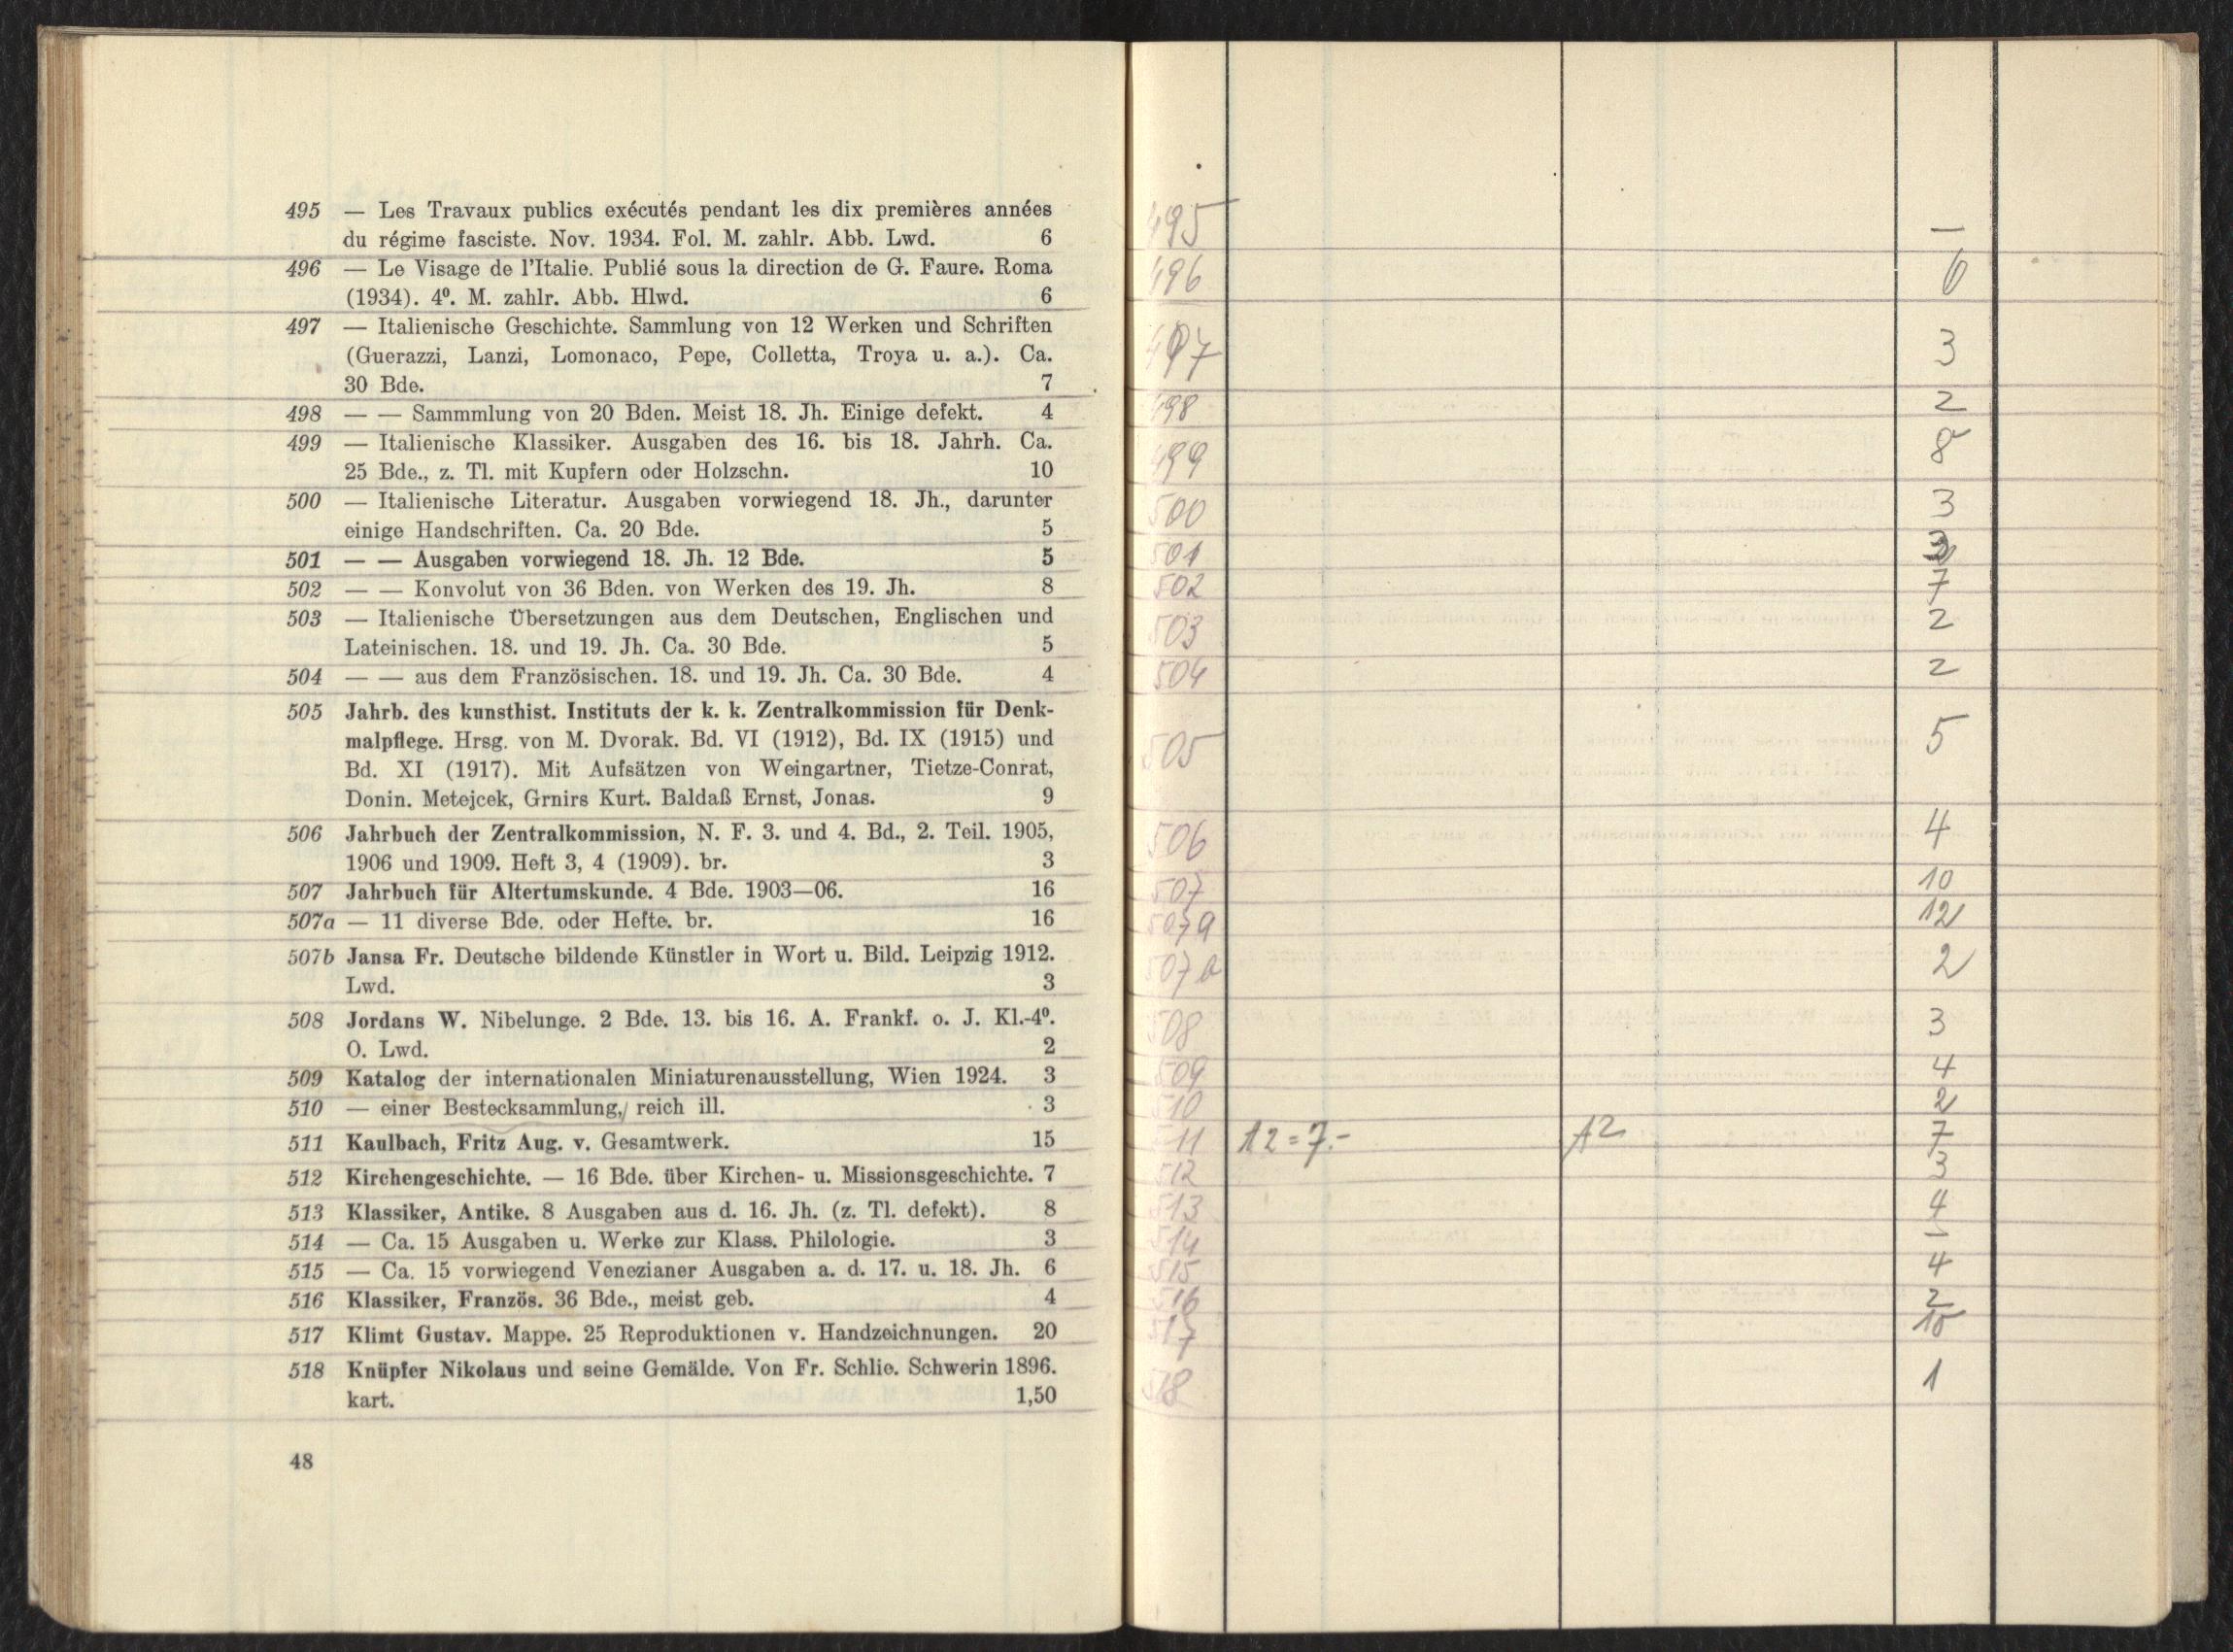 495 — Les Travaux publics exécutés pendant les dix premières années
du régime fasciste. Nov. 1934. Fol. M. zahlr. Abb. Lwd. 6
496 — Le Visage de l'Italie. Publié sous la direction de G. Faure. Roma
(1934). 4⁰. M. zahlr. Abb. Hlwd. 6
497 — Italienische Geschichte. Sammlung von 12 Werken und Schriften
(Guerazzi, Lanzi, Lomonaco, Pepe, Colletta, Troya u. a.). Ca.
30 Bde. 7
498 — — Sammmlung von 20 Bden. Meist 18. Jh. Einige defekt. 4
499 — Italienische Klassiker. Ausgaben des 16. bis 18. Jahrh. Ca.
25 Bde., z. Tl. mit Kupfern oder Holzschn. 10
500 — Italienische Literatur. Ausgaben vorwiegend 18. Jh., darunter
einige Handschriften. Ca. 20 Bde. 5
501 — — Ausgaben vorwiegend 18. Jh. 12 Bde. 5
502 — — Konvolut von 36 Bden. von Werken des 19. Jh. 8
503 — Italienische Übersetzungen aus dem Deutschen, Englischen und
Lateinischen. 18. und 19. Jh. Ca. 30 Bde. 5
504 — — aus dem Französischen. 18. und 19. Jh. Ca. 30 Bde. 4
505 Jahrb. des kunsthist. Instituts der k. k. Zentralkommission für Denk-
malpflege. Hrsg. von M. Dvorak. Bd. VI (1912), Bd. IX (1915) und
Bd. XI (1917). Mit Aufsätzen von Weingartner, Tietze-Conrat,
Donin. Metejcek, Grnirs Kurt. Baldaß Ernst, Jonas. 9
506 Jahrbuch der Zentralkommission, N. F. 3. und 4. Bd., 2. Teil. 1905,
1906 und 1909. Heft 3, 4 (1909). br. 3
507 Jahrbuch für Altertumskunde. 4 Bde. 1903—06. 16
507a — 11 diverse Bde. oder Hefte. br. 16
507b Jansa Fr. Deutsche bildende Künstler in Wort u. Bild. Leipzig 1912.
Lwd. 3
508 Jordans W. Nibelunge. 2 Bde. 13. bis 16. A. Frankf. o. J. Kl.-4⁰.
O. Lwd. 2
509 Katalog der internationalen Miniaturenausstellung, Wien 1924. 3
510 — einer Bestecksammlung, reich ill. 3
511 Kaulbach, Fritz Aug. v. Gesamtwerk. 15
512 Kirchengeschichte. — 16 Bde. über Kirchen- u. Missionsgeschichte. 7
513 Klassiker, Antike. 8 Ausgaben aus d. 16. Jh. (z. Tl. defekt). 8
514 — Ca. 15 Ausgaben u. Werke zur Klass. Philologie. 3
515 — Ca. 15 vorwiegend Venezianer Ausgaben a. d. 17. u. 18. Jh. 6
516 Klassiker, Französ. 36 Bde., meist geb. 4
517 Klimt Gustav. Mappe. 25 Reproduktionen v. Handzeichnungen. 20
518 Knüpfer Nikolaus und seine Gemälde. Von Fr. Schlie. Schwerin 1896.
kart. 1,50
48
495 —
496 6
497 3
498 2
499 8
500 3
501
502 7
503 2
504 2
505 5
506 4
507 10
507a 12
507b 2
508 3
509 4
510 2
511 12=7.- 12 7
512 3
513 4
514 —
515 4
516 2
517 10
518 1